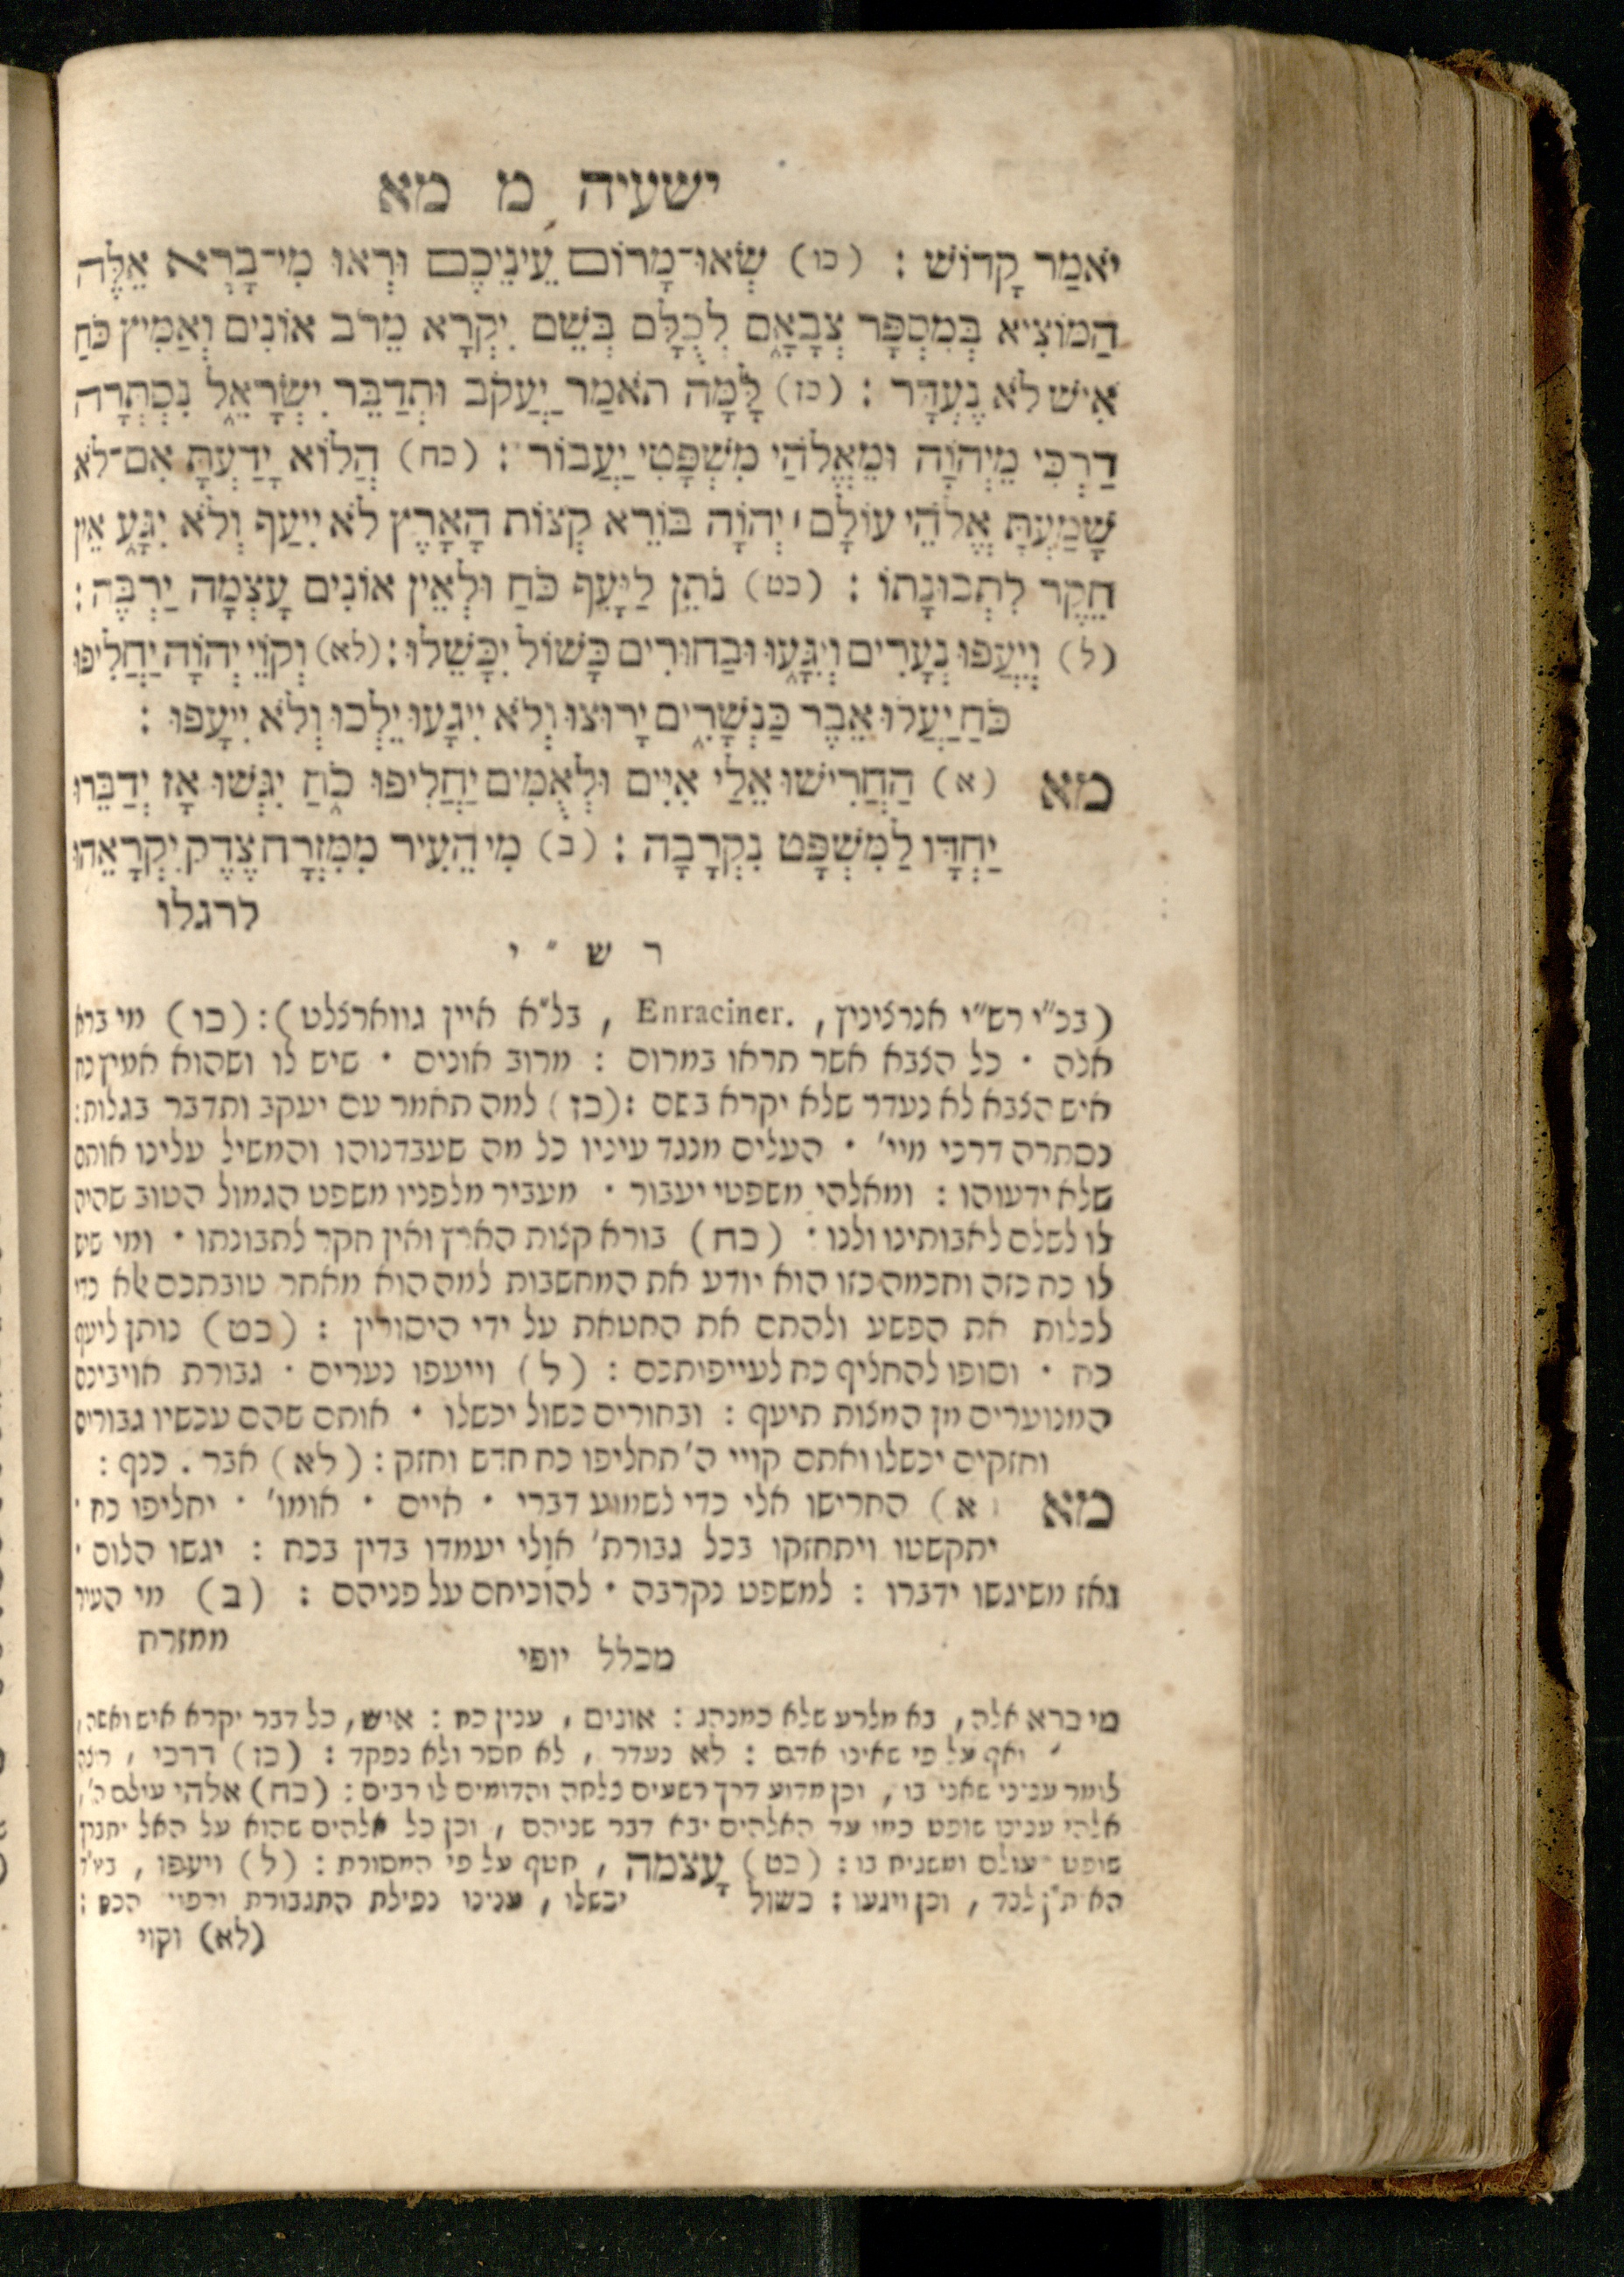 ישעיה מ מא
יֹאמַר קָדוֹשׁ : (כו) שְׂאוּ־מָרוֹם עֵינֵיכֶם וּרְאוּ מִי־בָרָא אֵלֶּה
הַמּוֹצִיא בְּמִסְפָּר צְבָאָם לְכֻלָּם בְּשֵׁם יִקְרָא מֵרֹב אוֹנִים וְאַמִּיץ כֹּחַ
אִישׁ לֹא נֶעְדָּר : (כז) לָמָּה תֹאמַר יַעֲקֹב וּתְדַבֵּר יִשְׂרָאֵל נִסְתְּרָה
דַרְכִּי מֵיְהוָֹה וּמֵאֱלֹהַי מִשְׁפָּטִי יַעֲבוֹר : (כח) הֲלוֹא יָדַעְתָּ אִם־לֹא
שָׁמַעְתָּ אֱלֹהֵי עוֹלָם ׀ יְהוָֹה בּוֹרֵא קְצוֹת הָאָרֶץ לֹא יִיעַף וְלֹא יִגָּע אֵין
חֵקֶר לִתְבוּנָתוֹ : (כט) נֹתֵן לַיָּעֵף כֹּחַ וּלְאֵין אוֹנִים עָצְמָה יַרְבֶּה :
(ל) וְיִעֲפוּ נְעָרִים וְיִגָּעוּ וּבַחוּרִים כָּשׁוֹל יִכָּשֵׁלוּ : (לא) וְקוֹיֵ יְהוָֹה יַחֲלִיפוּ
כֹחַ יַעֲלוּ אֵבֶר כַּנְּשָׁרִים יָרוּצוּ וְלֹא יִיגָעוּ יֵלְכוּ וְלֹא יִיעָפוּ :
מא (א) הַחֲרִישׁוּ אֵלַי אִיִּים וּלְאֻמִּים יַחֲלִיפוּ כֹחַ יִגְּשׁוּ אָז יְדַבֵּרוּ
יַחְדָּו לַמִּשְׁפָּט נִקְרָבָה : (ב) מִי הֵעִיר מִמִּזְרָח צֶדֶק יִקְרָאֵהוּ
לרגלו
ר ש " י
(בכ"י רש"י אנרצינין , Enraciner. , בל"א איין גווארצלט) : (כו) מי ברא
אלה · כל הצבא אשר תראו במרום : מרוב אונים · שיש לו ושהוא אמיץ כח
איש הצבא לא נעדר שלא יקרא בשם : (כז) למה תאמר עם יעקב ותדבר בגלות :
נסתרה דרכי מיי' · העלים מנגד עיניו כל מה שעבדנוהו והמשיל עלינו אותם
שלא ידעוהו : ומאלהי משפטי יעבור · מעביר מלפניו משפט הגמול הטוב שהיה
לו לשלם לאבותינו ולנו : (כח) בורא קצות הארץ ואין חקר לתבונתו · ומי שיש
לו כח כזה וחכמה כזו הוא יודע את המחשבות למה הוא מאחר טובתכם אלא כדי
לכלות את הפשע ולהתם את החטאת על ידי היסורין : (כט) נותן ליעף
כח · וסופו להחליף כח לעייפותכם : (ל) וייעפו נערים · גבורת אויביכם
המנוערים מן המצות תיעף : ובחורים כשול יכשלו · אותם שהם עכשיו גבורים
וחזקים יכשלו ואתם קויי ה' תחליפו כח חדש וחזק : (לא) אבר . כנף :
מא (א) החרישו אלי כדי לשמוע דברי · איים · אומו' · יחליפו כח ·
יתקשטו ויתחזקו בכל גבורת' אולי יעמדו בדין בכח : יגשו הלום ·
ואז משיגשו ידברו : למשפט נקרבה · להוכיחם על פניהם : (ב) מי העיר
ממזרח
מכלל יופי
מי ברא אלה , בא מלרע שלא כמנהג : אונים , ענין כח : איש , כל דבר יקרא איש ואשה ,
ואף על פי שאינו אדם : לא נעדר , לא חסר ולא נפקד : (כז) דרכי , רצה
לומר עניני שאני בו , וכן מדוע דרך רשעים צלחה והדומים לו רבים : (כח) אלהי עולם ה' ,
אלהי ענינו שופט כמו עד האלהים יבא דבר שניהם , וכן כל אלהים שהוא על האל יתברך
שופט העולם ומשגיח בו : (כט) עָצמה , חטף על פי המסורת : (ל) ויעפו ,
וכן ויגעו : כשול יכשלו , ענינו נפילת התגבורת ורפוי הכח :
(לא) וקוי